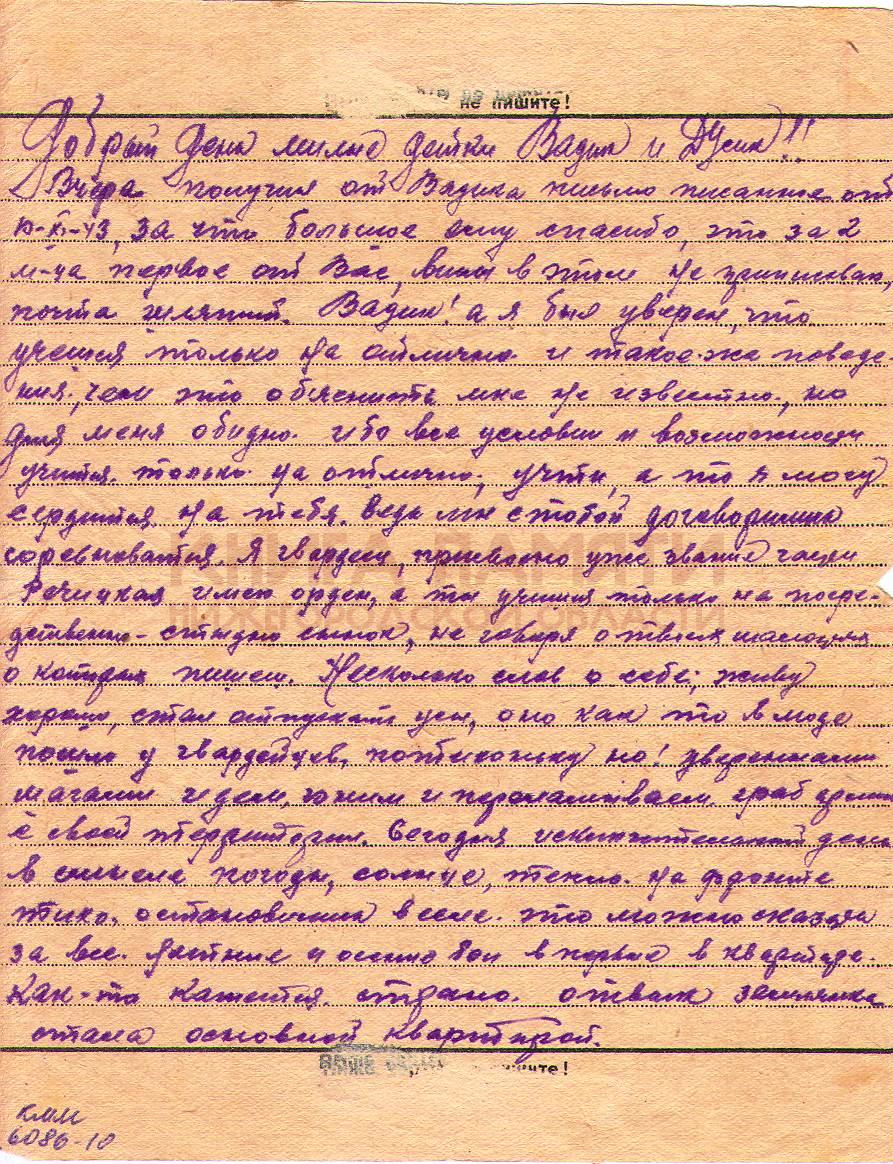 не пишите!
Добрый день милые детки Вадик и Дусик!!
Вчера получил от Вадика письмо писанное от
10-XI-43, за что большое ему спасибо, это за 2
м-ца первое от Вас, вины в этом не приписываю,
почта шляпит. Вадик! а я был уверен, что
учешся только на отлично и такое-же поведе-
ния, чем это обяснить мне не известно, но
для меня обидно ибо все условии и возможности
учится только на отлично, учти, а то я могу
сердится на тебя. Ведь мы с тобой договорились
соревноватся. Я гвардеец, присвоено уже звание части
Речицкая имею орден, а ты учишся только на посре-
дственно - стыдно сынок, не говоря о твоих шалостях
о которых пишеш. Несколько слов о себе; живу
хорошо, стал отпускать усы, оно как то в моде
пошло у гвардейцев, потихоньку но! уверенными
шагами идем, гоним и перемалываем граб армию
с своей територии. Сегодня исключительный день
в смысле погоды, солнце, тепло. На фронте
тихо, остановились в селе. это можно сказать
за все летние и осенние бои впервые в квартире.
Как-то кажется странно. отвык землянка
стала основной квартирой.
КНИГА ПАМЯТИ
НИЖЕГОРОДСКОЙ ОБЛАСТИ
КММ
6086-10